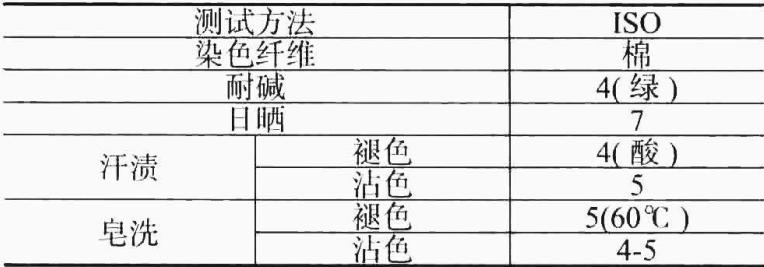 测试方法 ISO
染色纤维 棉
耐碱 4( 绿 )
日晒 7
汗渍 褪色 4( 酸 )
沾色 5
皂洗 褪色 5(60℃ )
沾色 4-5